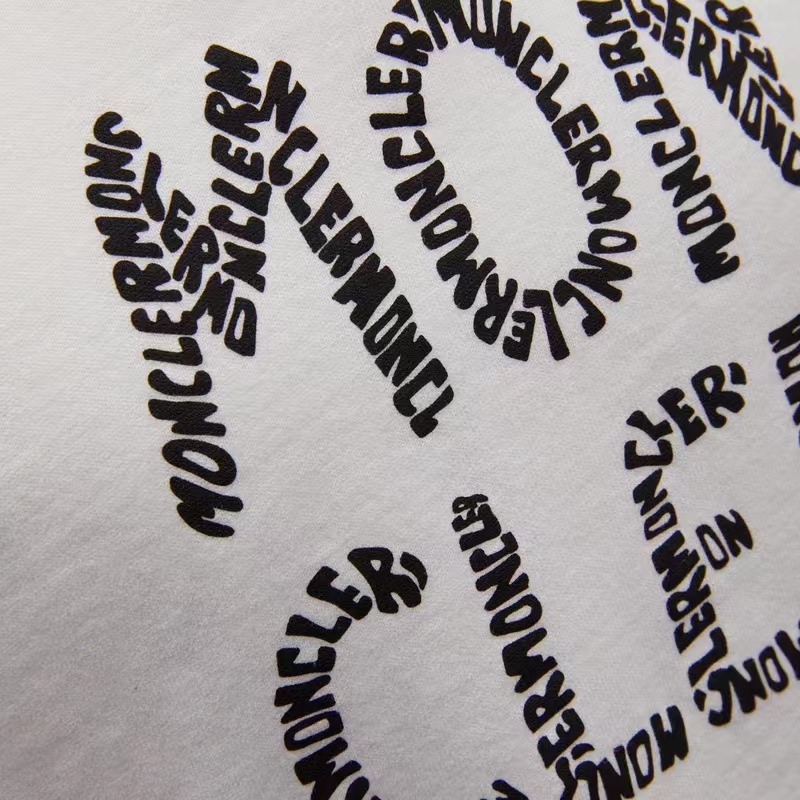 MONCLERMONC
LERMO
NCLERM
NCLERMONCL
MONCLERMONCLERMONCLERMONCLER
MONCLERM
CLERMONC
MONCLER
MONCLERMONCLER
MONCLERMONCLER
ON
MONC